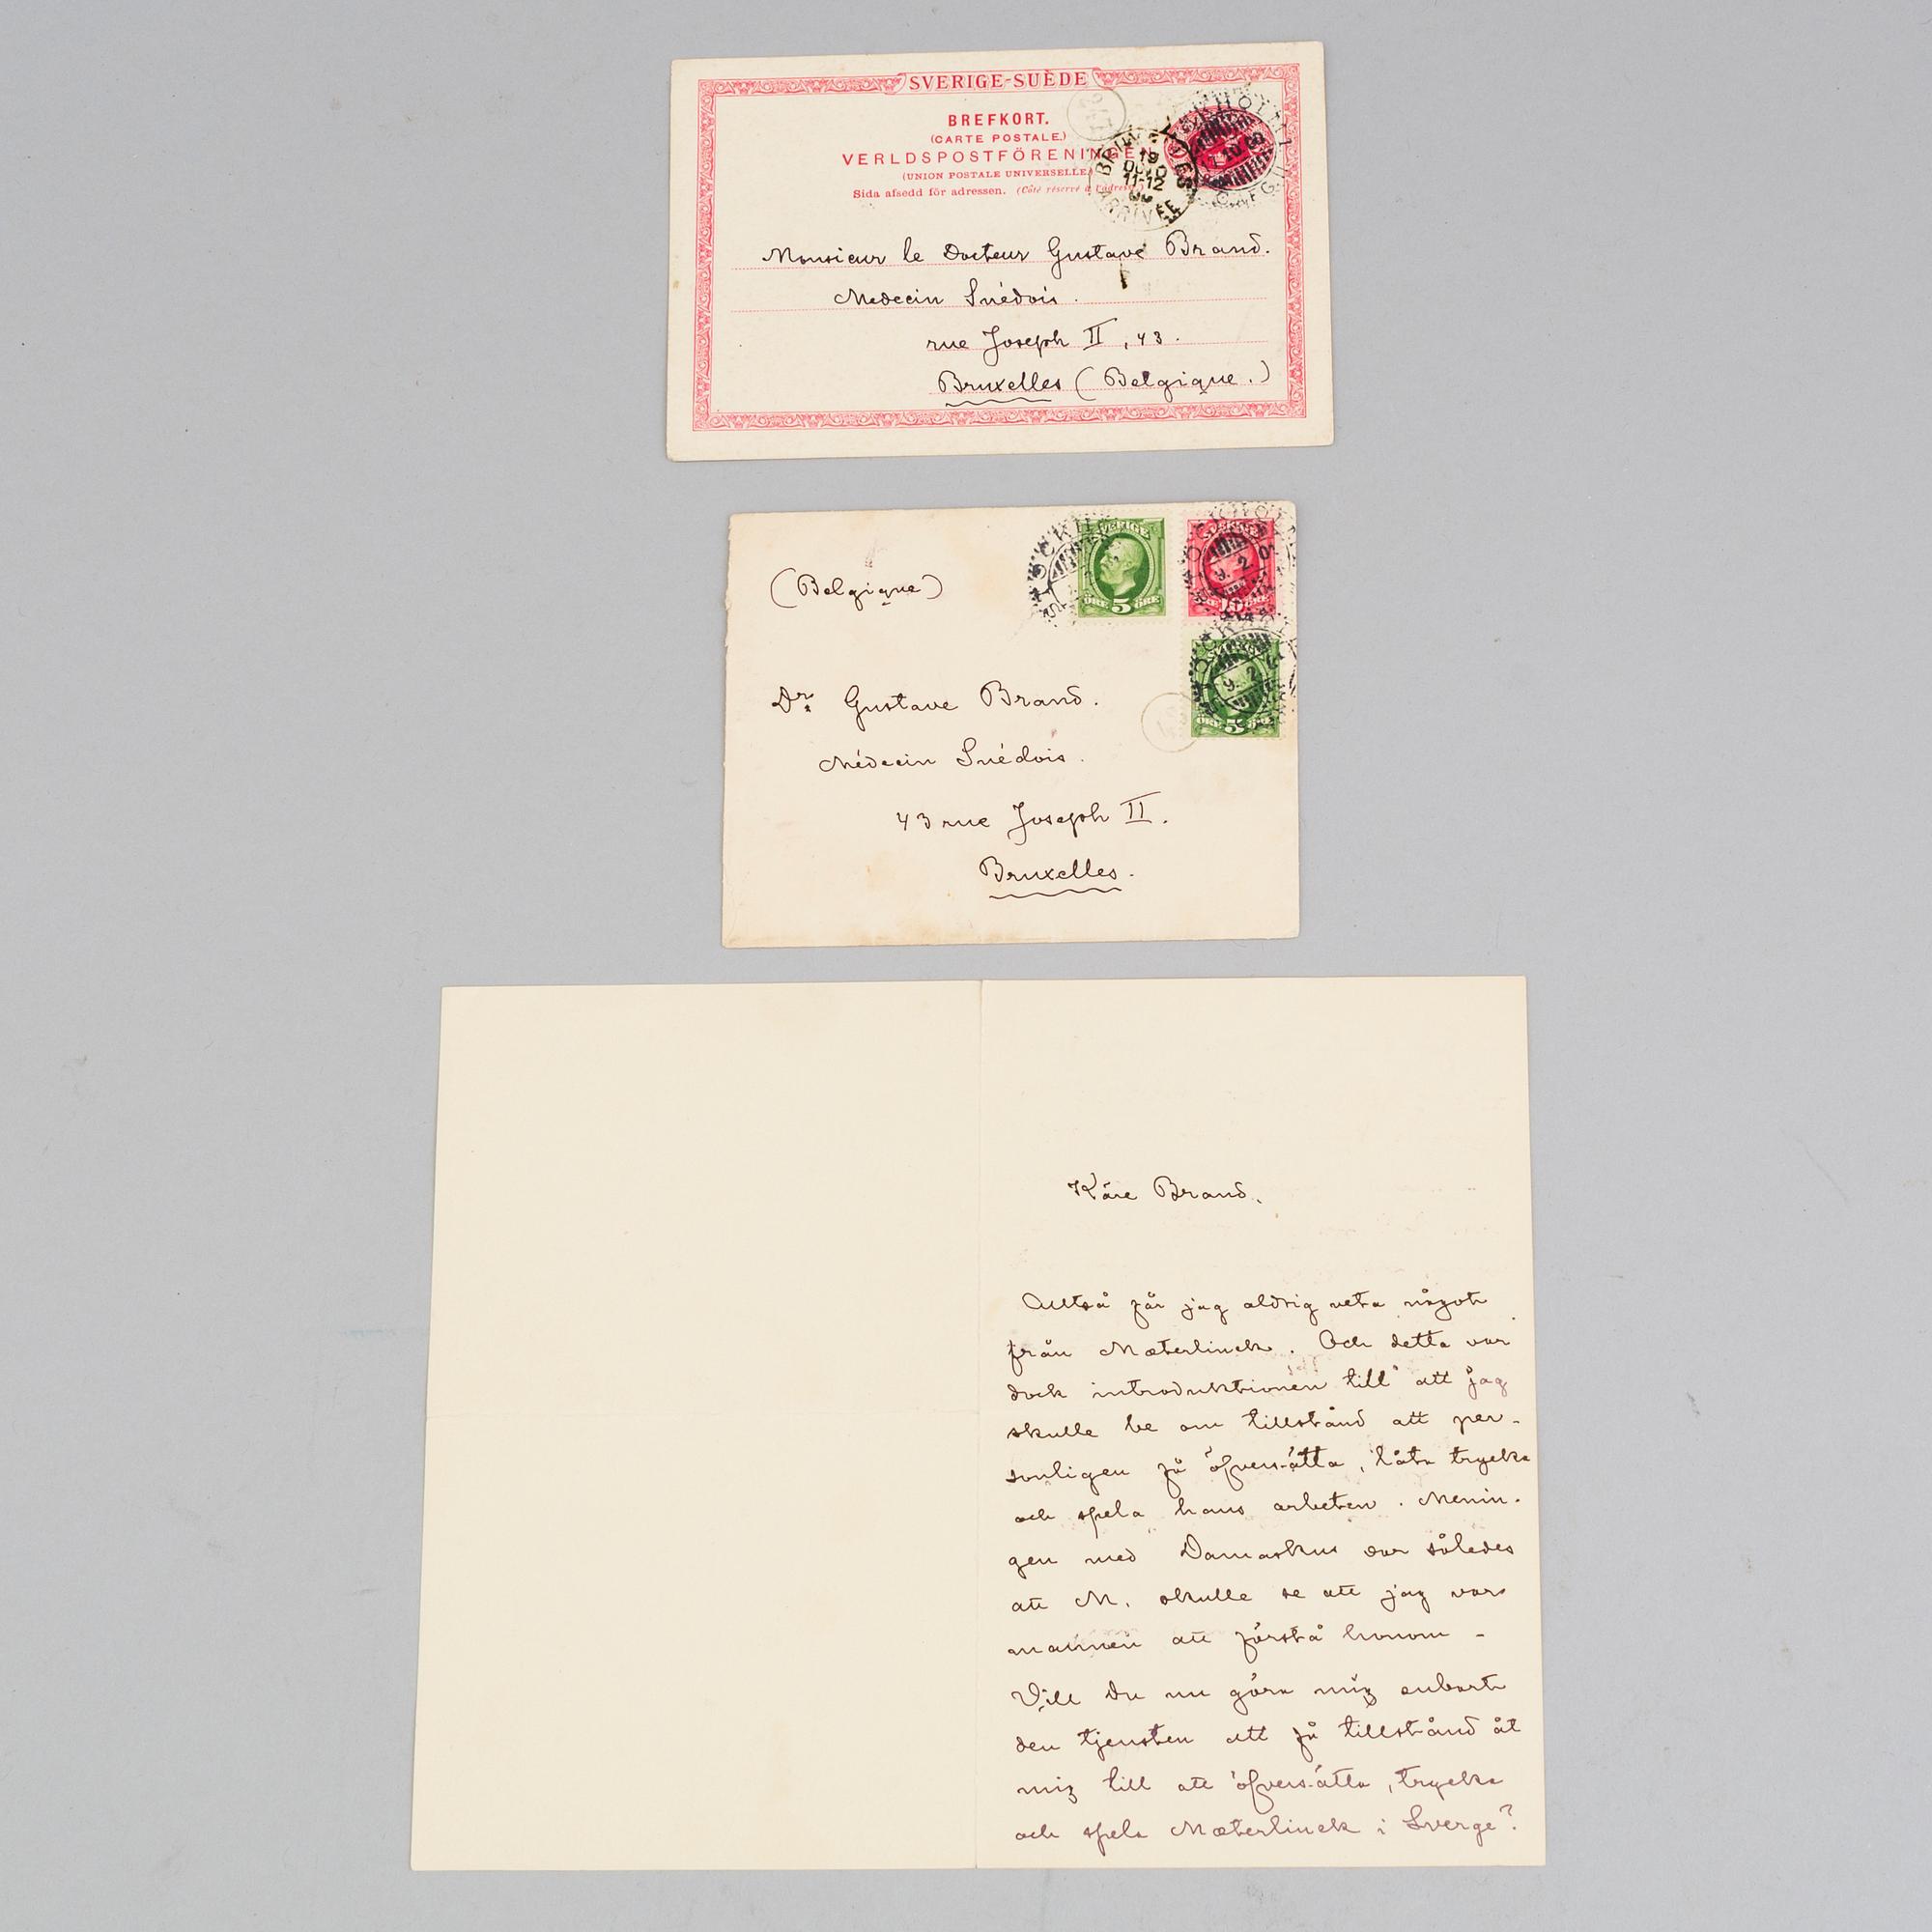 SVERIGE-SUÈDE
BREFKORT.
(CARTE POSTALE.)
VERLDSPOSTFÖRENINGEN
(UNION POSTALE UNIVERSELLE)
Sida afsedd för adressen. (Côté réservé à l'adresse)
19
11-12
ARRIVÉE
Monsieur le Docteur Gustave Brand.
Medecin Suédois.
rue Joseph II, 43.
Bruxelles (Belgique.)
ÖRE 5 ÖRE
9. 2
9. 2
ÖRE 5 ÖRE
(Belgique)
Dr. Gustave Brand.
Médecin Suédois.
43 rue Joseph II.
Bruxelles.
Käre Brand,
Alltså får jag aldrig veta något
från Mæterlinck. Och detta var
dock introduktionen till att jag
skulle be om tillstånd att per-
sonligen få öfversätta, låta trycka
och spela hans arbeten. Menin-
gen med Damaskus var således
att M. skulle se att jag vore
mannen att förstå honom –
Vill Du nu göra mig enbart
den tjensten att få tillstånd åt
mig till att öfversätta, trycka
och spela Mæterlinck i Sverge?